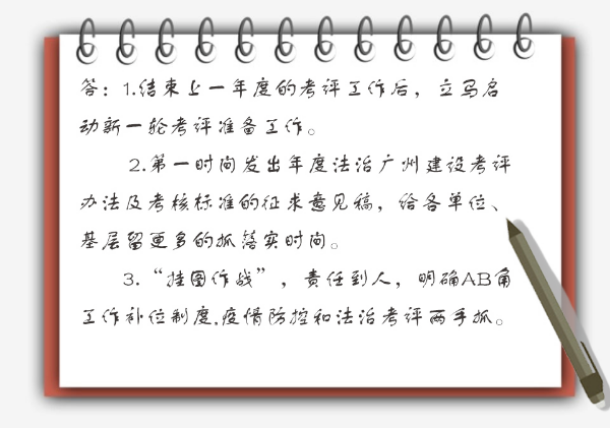 答：1.结束上一年度的考评工作后，立马启
动新一轮考评准备工作。
2.第一时间发出年度法治广州建设考评
办法及考核标准的征求意见稿，给各单位、
基层留更多的抓落实时间。
3.“挂图作战”，责任到人，明确AB角
工作补位制度,疫情防控和法治考评两手抓。